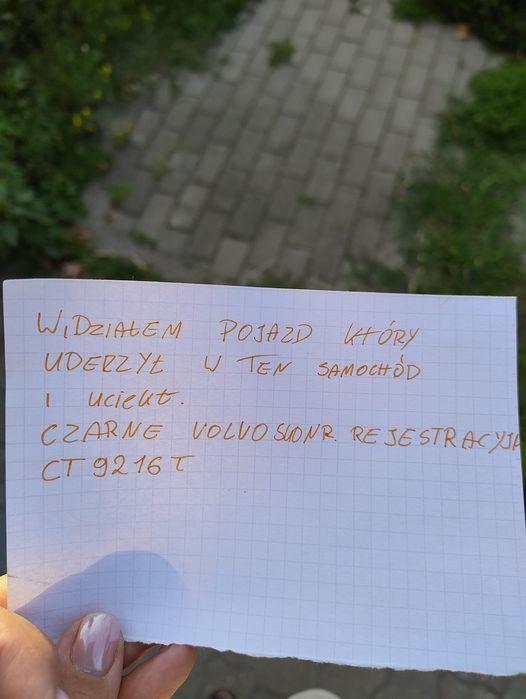 WIDZIAŁEM POJAZD KTÓRY
UDERZYŁ W TEN SAMOCHÓD
I UCIEKŁ.
CZARNE VOLVO NR. REJESTRACYJA
CT 9216 T